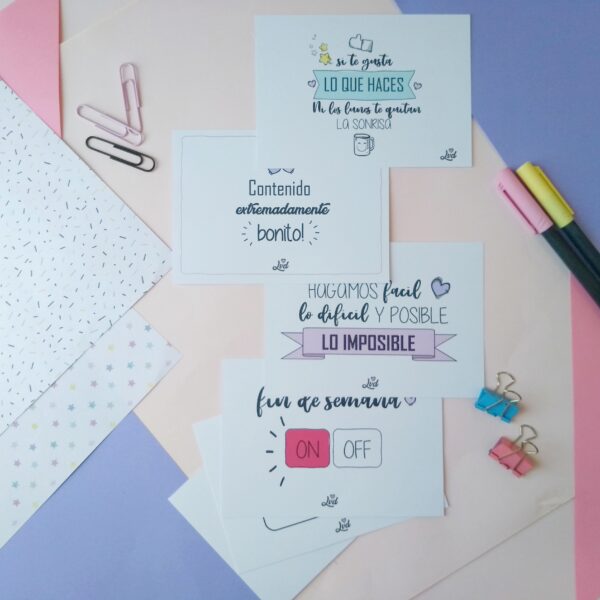 si te gusta
LO QUE HACES
Ni los lunes te quitan
LA SONRISA
Lvd
Contenido
extremadamente
bonito!
Lvd
HAGAMOS fácil
lo difícil Y POSIBLE
LO IMPOSIBLE
Lvd
fin de semana
ON OFF
Lvd
Lvd